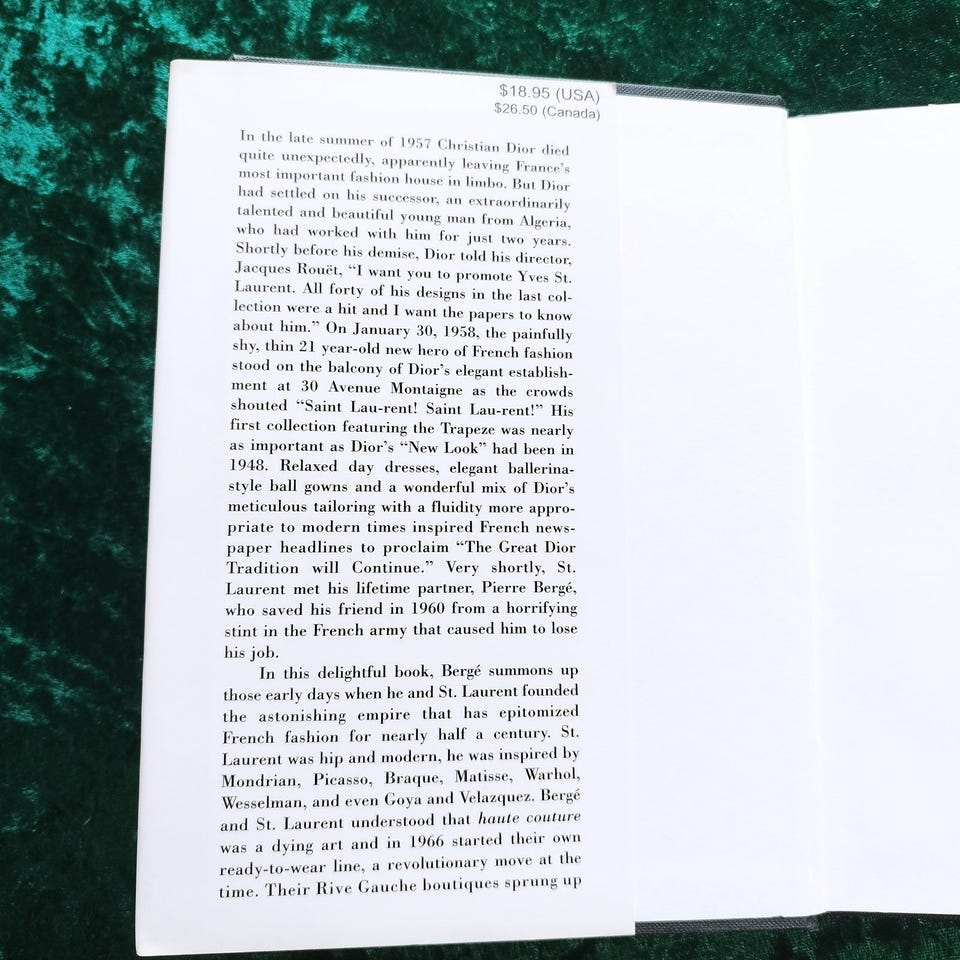 $18.95 (USA)
$26.50 (Canada)
In the late summer of 1957 Christian Dior died
quite unexpectedly, apparently leaving France's
most important fashion house in limbo. But Dior
had settled on his successor, an extraordinarily
talented and beautiful young man from Algeria,
who had worked with him for just two years.
Shortly before his demise, Dior told his director,
Jacques Rouët, “I want you to promote Yves St.
Laurent. All forty of his designs in the last col-
lection were a hit and I want the papers to know
about him.” On January 30, 1958, the painfully
shy, thin 21 year-old new hero of French fashion
stood on the balcony of Dior's elegant establish-
ment at 30 Avenue Montaigne as the crowds
shouted “Saint Lau-rent! Saint Lau-rent!” His
first collection featuring the Trapeze was nearly
as important as Dior's “New Look” had been in
1948. Relaxed day dresses, elegant ballerina-
style ball gowns and a wonderful mix of Dior's
meticulous tailoring with a fluidity more appro-
priate to modern times inspired French news-
paper headlines to proclaim “The Great Dior
Tradition will Continue.” Very shortly, St.
Laurent met his lifetime partner, Pierre Bergé,
who saved his friend in 1960 from a horrifying
stint in the French army that caused him to lose
his job.
In this delightful book, Bergé summons up
those early days when he and St. Laurent founded
the astonishing empire that has epitomized
French fashion for nearly half a century. St.
Laurent was hip and modern, he was inspired by
Mondrian, Picasso, Braque, Matisse, Warhol,
Wesselman, and even Goya and Velazquez. Bergé
and St. Laurent understood that haute couture
was a dying art and in 1966 started their own
ready-to-wear line, a revolutionary move at the
time. Their Rive Gauche boutiques sprung up